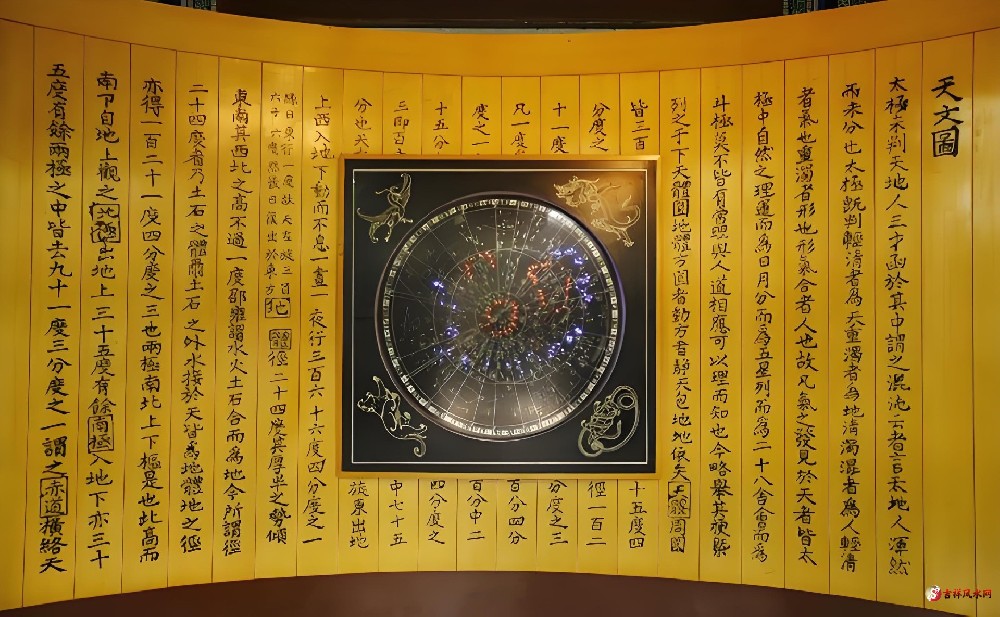 天文圖
太極未判天地人三才函於其中謂之混沌云者言天地人渾然
而未分也太極既判輕清者為天重濁者為地清濁混者為人輕清
者氣也重濁者形也形氣合者人也故凡氣之發見於天者皆太
極中自然之理運而為日月分而為五星列而為二十八舍會而為
斗極莫不皆有常與人道相應可以理而知也今略舉其梗槩
列之于下天體圓地體方圓者動方者靜天包地地依天天體周圍
皆三百
十五度四
分度之
徑一百二
十一度
分度之三
凡一度
百分四分
度之一
百分中二
十五分
四分度之
三即百
中七十五
分也天
旋東出地
上西入地下動而不息一晝一夜行三百六十六度四分度之一
緣日東行一度故天左旋三百
六十六度然後日復出於東方
地體徑二十四度其厚半之勢傾
東南其西北之高不過一度邵雍謂水火土石合而為地今所謂徑
二十四度者乃土石之體爾土石之外水接於天皆為地體地之徑
亦得一百二十一度四分度之三也兩極南北上下樞是也北高而
南下自地上觀之北極出地上三十五度有餘南極入地下亦三十
五度有餘兩極之中皆去九十一度三分度之一謂之赤道橫絡天
吉祥风水网